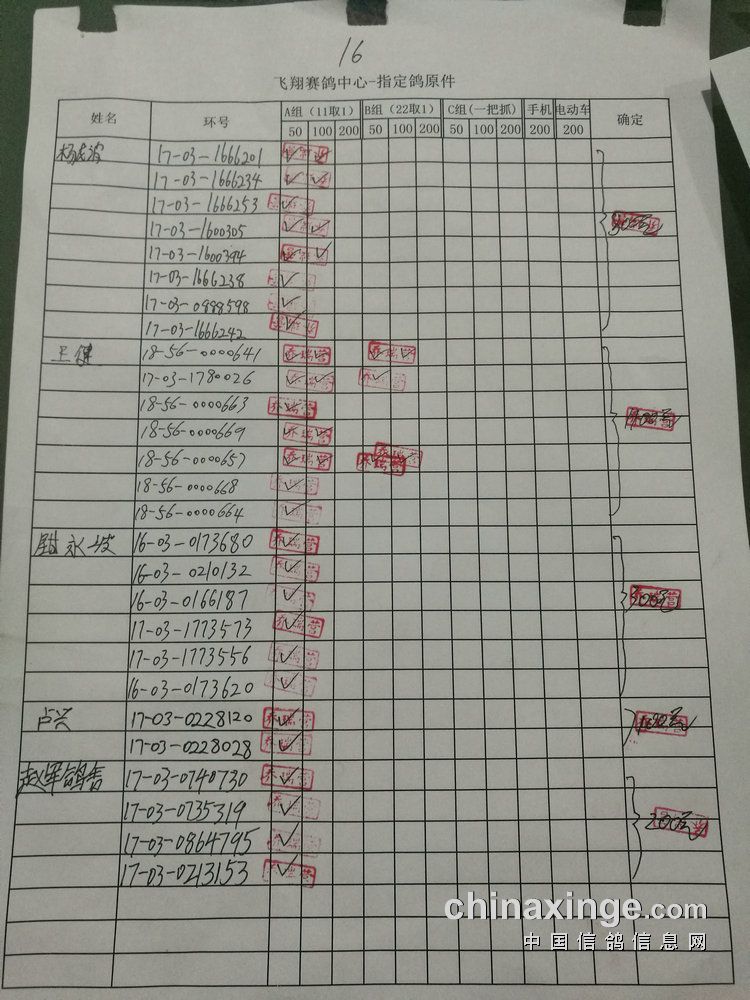 16
飞翔赛鸽中心-指定鸽原件
姓名 环号 A组（11取1） B组（22取1） C组(一把抓) 手机 电动车 确定
50 100 200 50 100 200 50 100 200 200 200
17-03-1666201 ✓ ✓
17-03-1666234 ✓ ✓
17-03-1666253 ✓
17-03-1600305 ✓ ✓
17-03-1600394 ✓ ✓
17-03-1666238 ✓
17-03-0888598 ✓
17-03-1666242 ✓
王健 18-56-0000641 ✓ ✓ ✓ ✓
17-03-1780026 ✓ ✓ ✓
18-56-0000663 ✓
18-56-0000669 ✓ ✓
18-56-0000657 ✓ ✓
18-56-0000668 ✓
18-56-0000664 ✓
永 16-03-0173680 ✓
16-03-0210132 ✓
16-03-0166187 ✓ 300元
17-03-1773573 ✓
17-03-1773556 ✓
16-03-0173620 ✓
卢兴 17-03-0228120 ✓ 100元
17-03-0228028 ✓
赵军鸽舍 17-03-0740730 ✓
17-03-0735319 ✓ 200元
17-03-0864795 ✓
17-03-0213153 ✓
chinaxinge.com
中国信鸽信息网